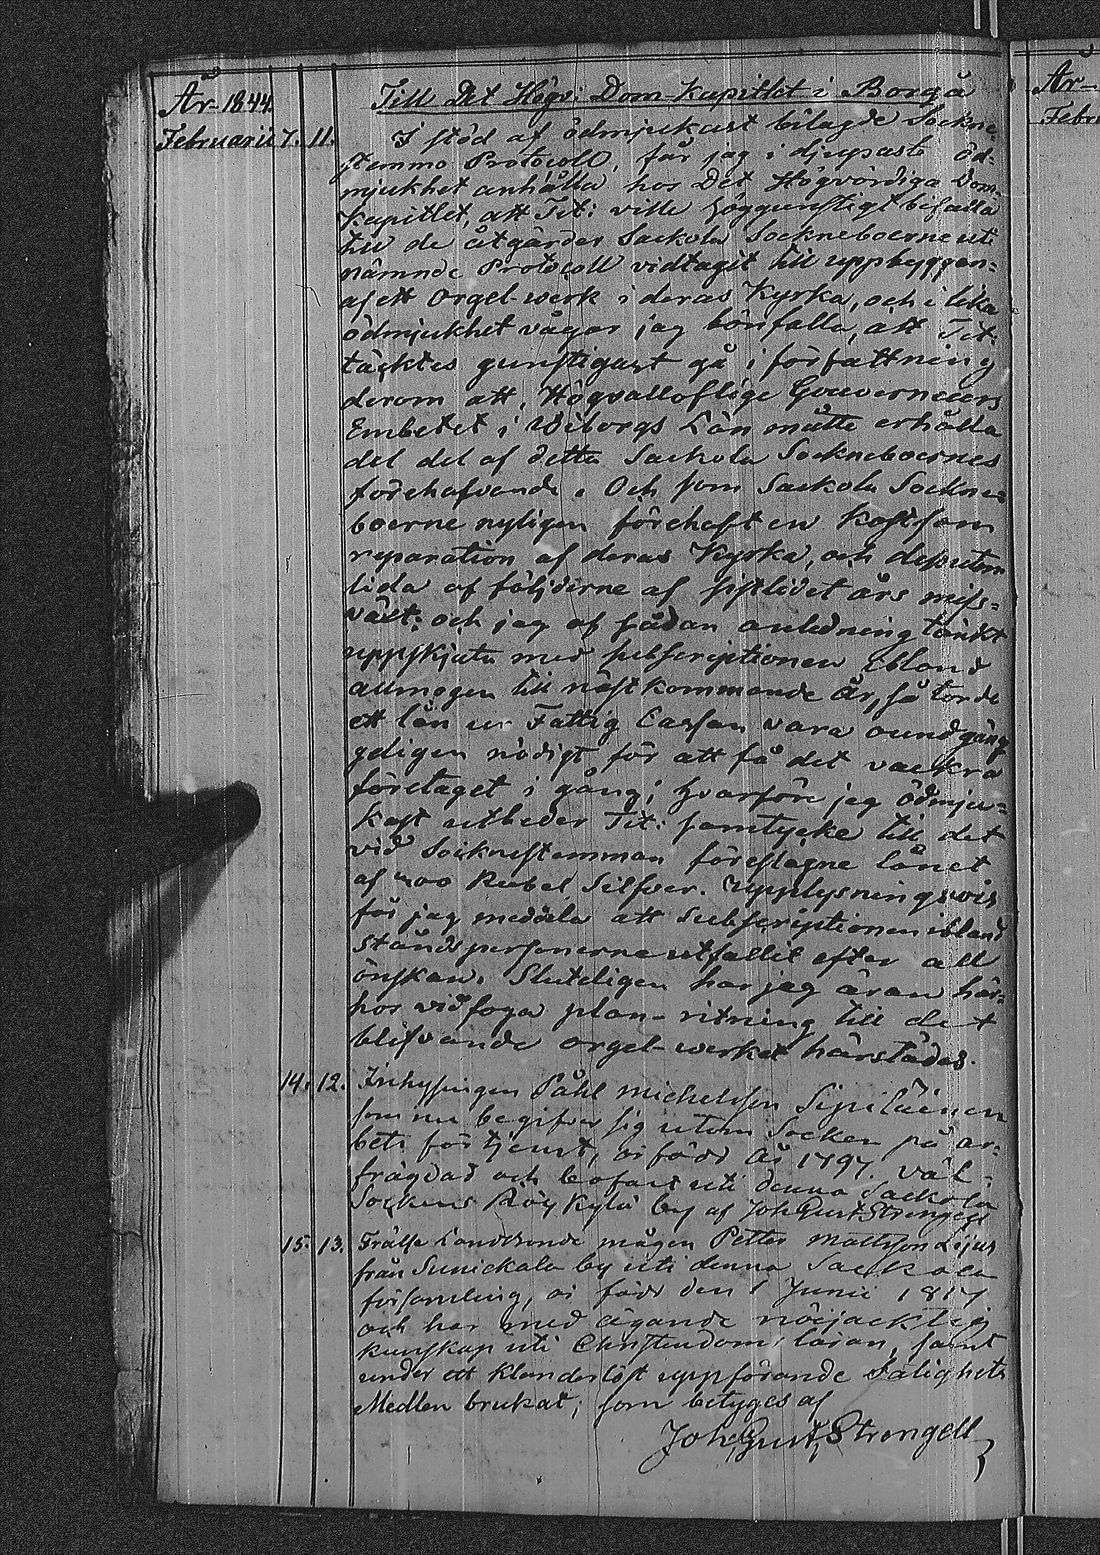 År 1844. Till Det Högv: Dom-Kapitlet i Borgå
Februarii 7. 11. I stöd af ödmjukast bilagde Sockne
Stemmo Protocoll, får jag i djupaste öd-
mjukhet anhålla hos Det Högvördiga Dom-
Kapitlet, att Tit: ville höggunstigt bifalla
till de åtgärder Sackola Sockneboerne uti
nämnde Protocoll vidtagit till uppbyggan-
af ett Orgel-werk i deras Kyrka, och i lika
ödmjukhet vågar jag bönfalla, att Tit:
täcktes gunstigast gå i författning
derom att, Högvälloflige Gouverneurs
Embetet i Wiborgs Län måtte erhålla
del del af detta Sackola Sockneboernes
förehafvande. Och som Sackola Sockne-
boerne nyligen förehaft en kostsam
reparation af deras Kyrka, och dessutom
lida af följderne af sistlidet års miss-
växt; och jag af sådan anledning tänkt
uppskjuta med subscriptionen ibland
allmogen till nästkommande år, så torde
ett lån ur Fattig Cassan vara oundgäng
geligen nödigt för att få det vackra
företaget i gång; hvarföre jag ödmju-
kast utbeder Tit: samtycke till det
vid Socknestemman föreslagne lånet
af 400 Rubel Silfver. Upplysningsvis
får jag meddela att Subscriptionen ibland
Ståndspersonerne utfallit efter all
önskan. Sluteligen har jag äran här-
hos vidfoga plan-ritning till det
blifvande orgel-werket härstädes.
14. 12. Inhysingen Påhl Michelsson Sipiläinen
som nu begifver sig utom Socken på ar-
bets förtjenst, är född År 1797. väl-
frägdad och bofast uti denna Sackola
Sockens Röykylä by af Joh Gust. Strengell
15. 13. Frälse Landbonde mågen Petter Mattsson Lijus
från Sunickala by uti denna Sackola
församling, är född den 1 Junii 1817
och har med ägande nöijacktig
kunskap uti Christendoms läran, samt
under ett klanderlöst uppförande Salighets
Medlen brukat; som betyges af
Joh Gust, Strengell
År-
Febru